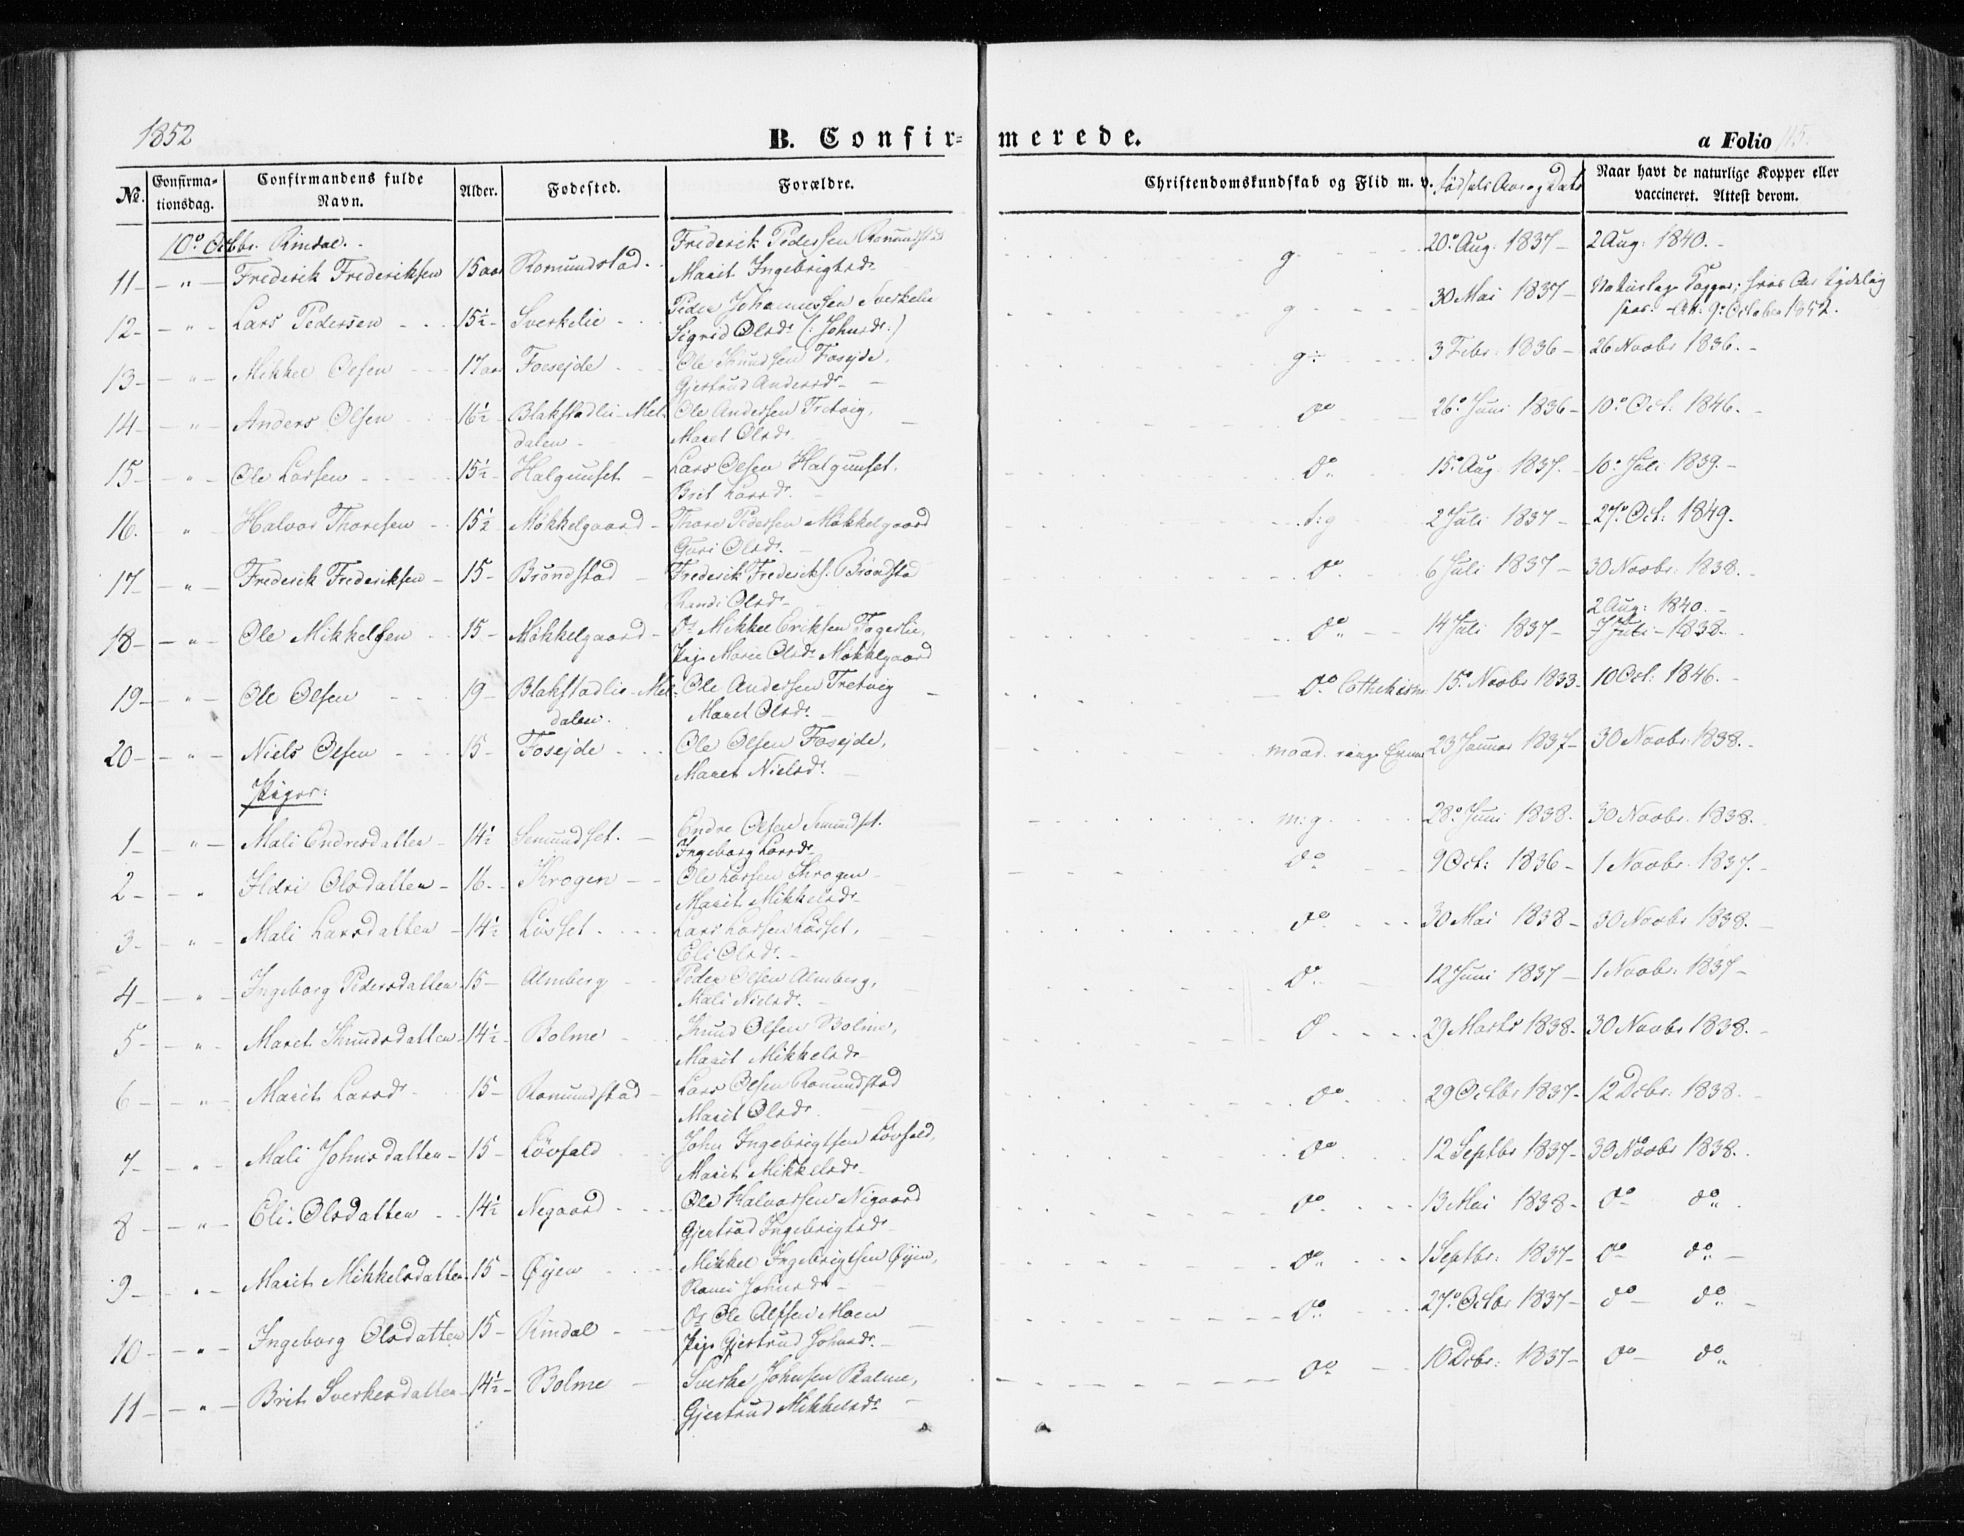 1852
B. Confirmerede.
a Folio 115.
No.
Confirmationsdag.
Confirmandens fulde Navn.
Alder.
Fødested.
Forældre.
Christendomskundskab og Flid m. v.
Fødsels Aar og Dato
Naar havt de naturlige Kopper eller vaccineret. Attest derom.
10de Octbr. Rindal.
11 - " - Frederik Frederiksen 15 aar Romundstad. Frederik Pedersen Romundstad Marit Ingebrigtsdr. g. 20. Aug. 1837 - 2 Aug. 1840. -
12 - " - Lars Pedersen - 15½ - Sverkelie - Peder Johannessen Sverkelie Sigrid Olsdr. (: Johnsdr. :) g 30 Mai 1837 - Naturlige Kopper; 9. October 1852.
13 - " - Mikkel Olsen - 17 aar Foseide Ole Knudsen Foseide, Gjertrud Andersdr. - g÷ 3 Febr. 1836 - 26 Novbr 1836. -
14 - " - Anders Olsen 16½ - Blakstadlie - Meldalen - Ole Andersen Tretvig, Maret Olsdr. do 26. Juni 1836 - 10. Oct. 1846. -
15 - " - Ole Larsen - 15½ - Halgunset - Lars Olsen Halgunset. Brit Larsdr. - do 15. Aug. 1837. - 10. Juli 1839. -
16. " - Halvor Thoresen - 15½ - Møkkelgaard - Thore Pedersen Møkkelgaard Guri Olsdr. - t:g 2 Juli 1837 - 27. Oct: 1849.
17 - " - Frederik Frederiksen - 15 - Brøndstad - Frederik Frederiks. Brøndstad Randi Olsdr. - do 6 Juli 1837 - 30 Novbr. 1838. -
18 - " - Ole Mikkelsen - 15 - Møkkelgaard - Mikkel Eriksen Fagerlie, Pige Marie Olsdr. Møkkelgaard do 14 Juli 1837 - 2 Aug: 1840. - 7 Juli - 1838. -
19 - " - Ole Olsen - 19 - Blakstadlie - Meldalen. Ole Andersen Tretvig Maret Olsdr. - do 15. Novbr 1833 - 10 Oct: 1846. -
20 - " - Niels Olsen - 15 - Foseide - Ole Olsen Foseide, Maret Nielsdr. - 23 Januar 1837 - 30 Novbr. 1838. -
Piger:
1 - " - Mali Endresdatter - 14½ Semundset. - Endre Olsen Semundset. Ingeborg Larsdr. m:g 28. Juni 1838. 30 Novbr. 1838. -
2 - " Ildri Olsdatter - 16 - Krogen - Ole Larsen Krogen - Marit Mikkelsdr. - do 9 Oct: 1836 - 1 Novbr. 1837. -
3 - " - Mali Larsdatter - 14½ - Løset - Lars Larsen Løset, Eli Olsdr. - do 30 Mai 1838 - 30 Novbr 1838. -
4 - " Ingeborg Pedersdatter 15 - Almberg - Peder Olsen Almberg, Mali Nielsdr. - do 12 Juni 1837 - 1 Novbr: 1837 -
5 - " - Maret Knudsdatter - 14½ - Bolme - Knud Olsen Bolme, Marit Mikkelsdr. - do 29 Marts 1838 - 30 Novbr 1838. -
6 - " - Marit Larsdr. - 15 - Romundstad - Lars Olsen Romundstad Marit Olsdr. do 29 Octbr 1837 - 12 Dcbr: 1838. -
7 - " - Mali Johnsdatter - 15 - Løvfald John Ingebrigtsen Løvfald, Marit Mikkelsdr. - do 12 Septbr 1837 - 30 Novbr 1838.
8 - " - Eli Olsdatter - 14½ - Negaard - Ole Halvorsen Nigaard Gjertrud Ingebrigtsdr. do 13 Mai 1838 - do do
9 - " - Marit Mikkelsdatter 15 - Øyen - Mikkel Ingebrigtsen Øyen, Johnsdr. - do 1 Septbr: 1837 - do do -
10 - " - Ingeborg Olsdatter 15 - Rindal - Ole Moen Pige Gjertrud Johnsdr. - do 27. Octbr 1837 - do - do -
11 - " - Brit Sverkesdatter 14½ - Bolme - Sverke Johnsen Bolme, Gjertrud Mikkelsdr. do 10 Dcbr: 1837 - do - do